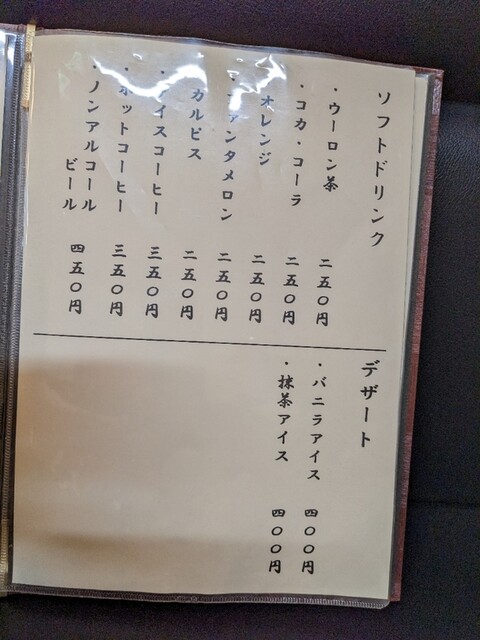 ソフトドリンク
・ウーロン茶 二五〇円
・コカ・コーラ 二五〇円
オレンジ 二五〇円
ファンタメロン 二五〇円
カルピス 二五〇円
・アイスコーヒー 三五〇円
・ホットコーヒー 三五〇円
・ノンアルコール
ビール 四五〇円
デザート
・バニラアイス 四〇〇円
・抹茶アイス 四〇〇円